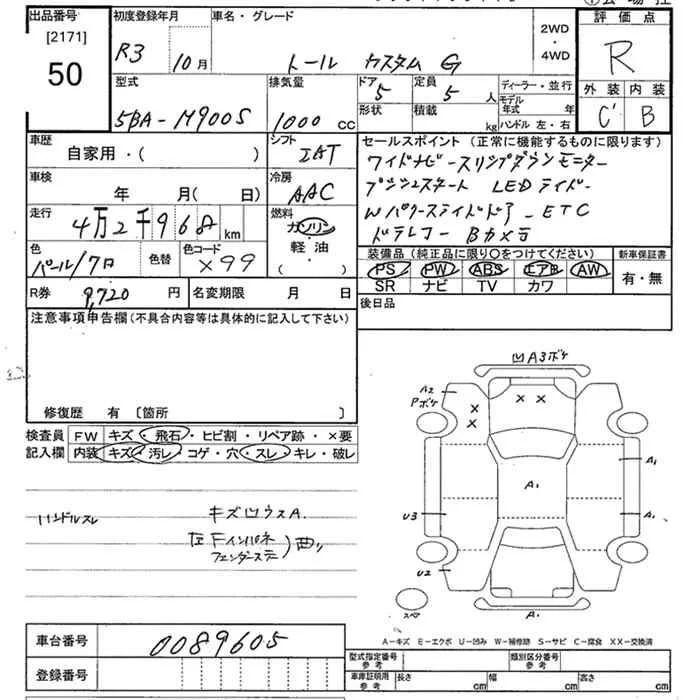 出品番号
[2171]
50
初度登録年月
R3 10月
車名・グレード
トール カスタム G
2WD
・
4WD
評価点
R
外装 内装
C' B
型式
5BA-M900S
排気量
1000 CC
ドア
5
定員
5 人
形状
積載
kg
ディーラー・並行
モデル年式 年
ハンドル 左・右
車歴
自家用・( )
シフト
IAT
車検
年 月( 日)
冷房
AAC
走行
4万2千968 km
燃料
ガソリン
軽・油
・( )
色
パール/クロ
色替
色コード
X99
R券 9,720 円
名変期限 月 日
セールスポイント(正常に機能するものに限ります)
ワイドナビ-スリップダウンモニター
プッシュスタート LEDライト-
Wパワースライドドア-ETC
ドラレコ- Bカメラ
装備品(純正品に限り○をつけてください)
PS PW ABS エアB AW
SR ナビ TV カワ
新車保証書
有・無
後日品
注意事項申告欄(不具合内容等は具体的に記入して下さい)
修復歴 有〔箇所 〕
検査員記入欄
FW キズ・飛石・ヒビ割・リペア跡・×要
内装 キズ・汚レ・コゲ・穴・スレ・キレ・破レ
ハンドルスレ
キズ凹ウスA.
左Fインパネ
凹A3ボケ
A2
Pボケ
A1
A1
A1
U3
U2
A1
スペア
A-キズ E-エクボ U-凹み W-補修跡 S-サビ C-腐食 XX-交換済
車台番号
0089605
登録番号
型式指定番号
参考
類別区分番号
参考
車庫証明用
参考
長さ cm 幅 cm 高さ cm